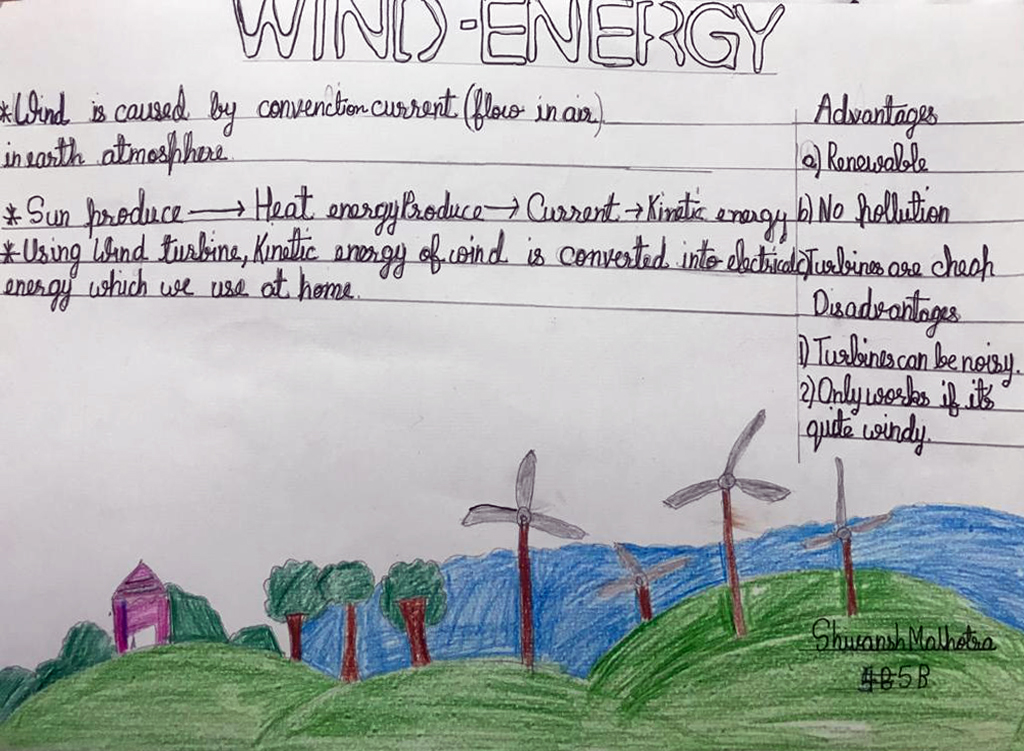 WIND-ENERGY
*Wind is caused by convenction current (flow in air)
in earth atmosphere.
*Sun produce → Heat energy Produce → Current → Kinetic energy
*Using Wind turbine, Kinetic energy of wind is converted into electrical
energy which we use at home.
Advantages
a) Renewable
b) No pollution
c) Turbines are cheap
Disadvantages
1) Turbines can be noisy.
2) Only works if it's
quite windy.
Shivansh Malhotra
5B